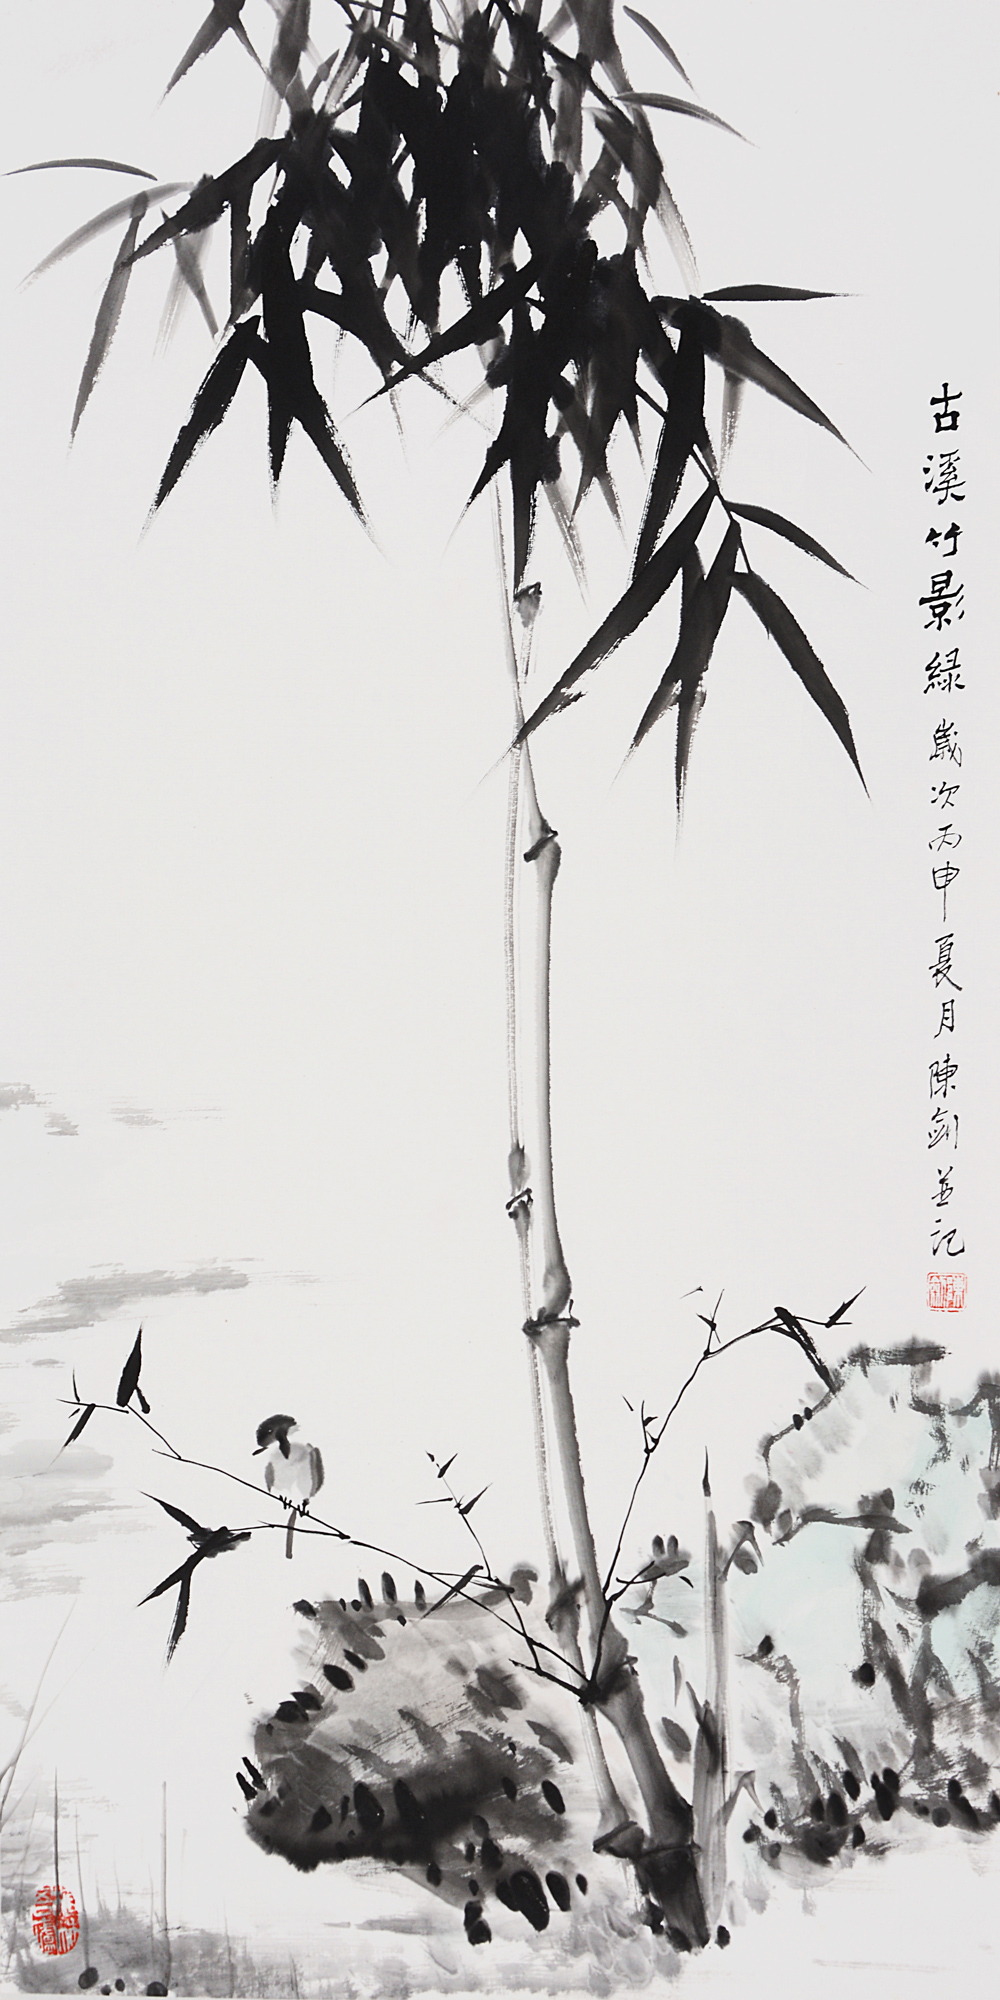 古溪竹影緑歲次丙申夏月陳劍並記